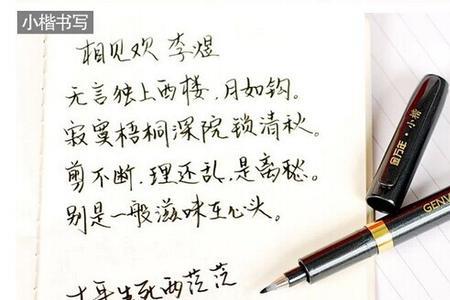 小楷书写
相见欢 李煜
无言独上西楼，月如钩。
寂寞梧桐深院锁清秋。
剪不断，理还乱，是离愁。
别是一般滋味在心头。
十年生死两茫茫
金万年·小楷
GENV